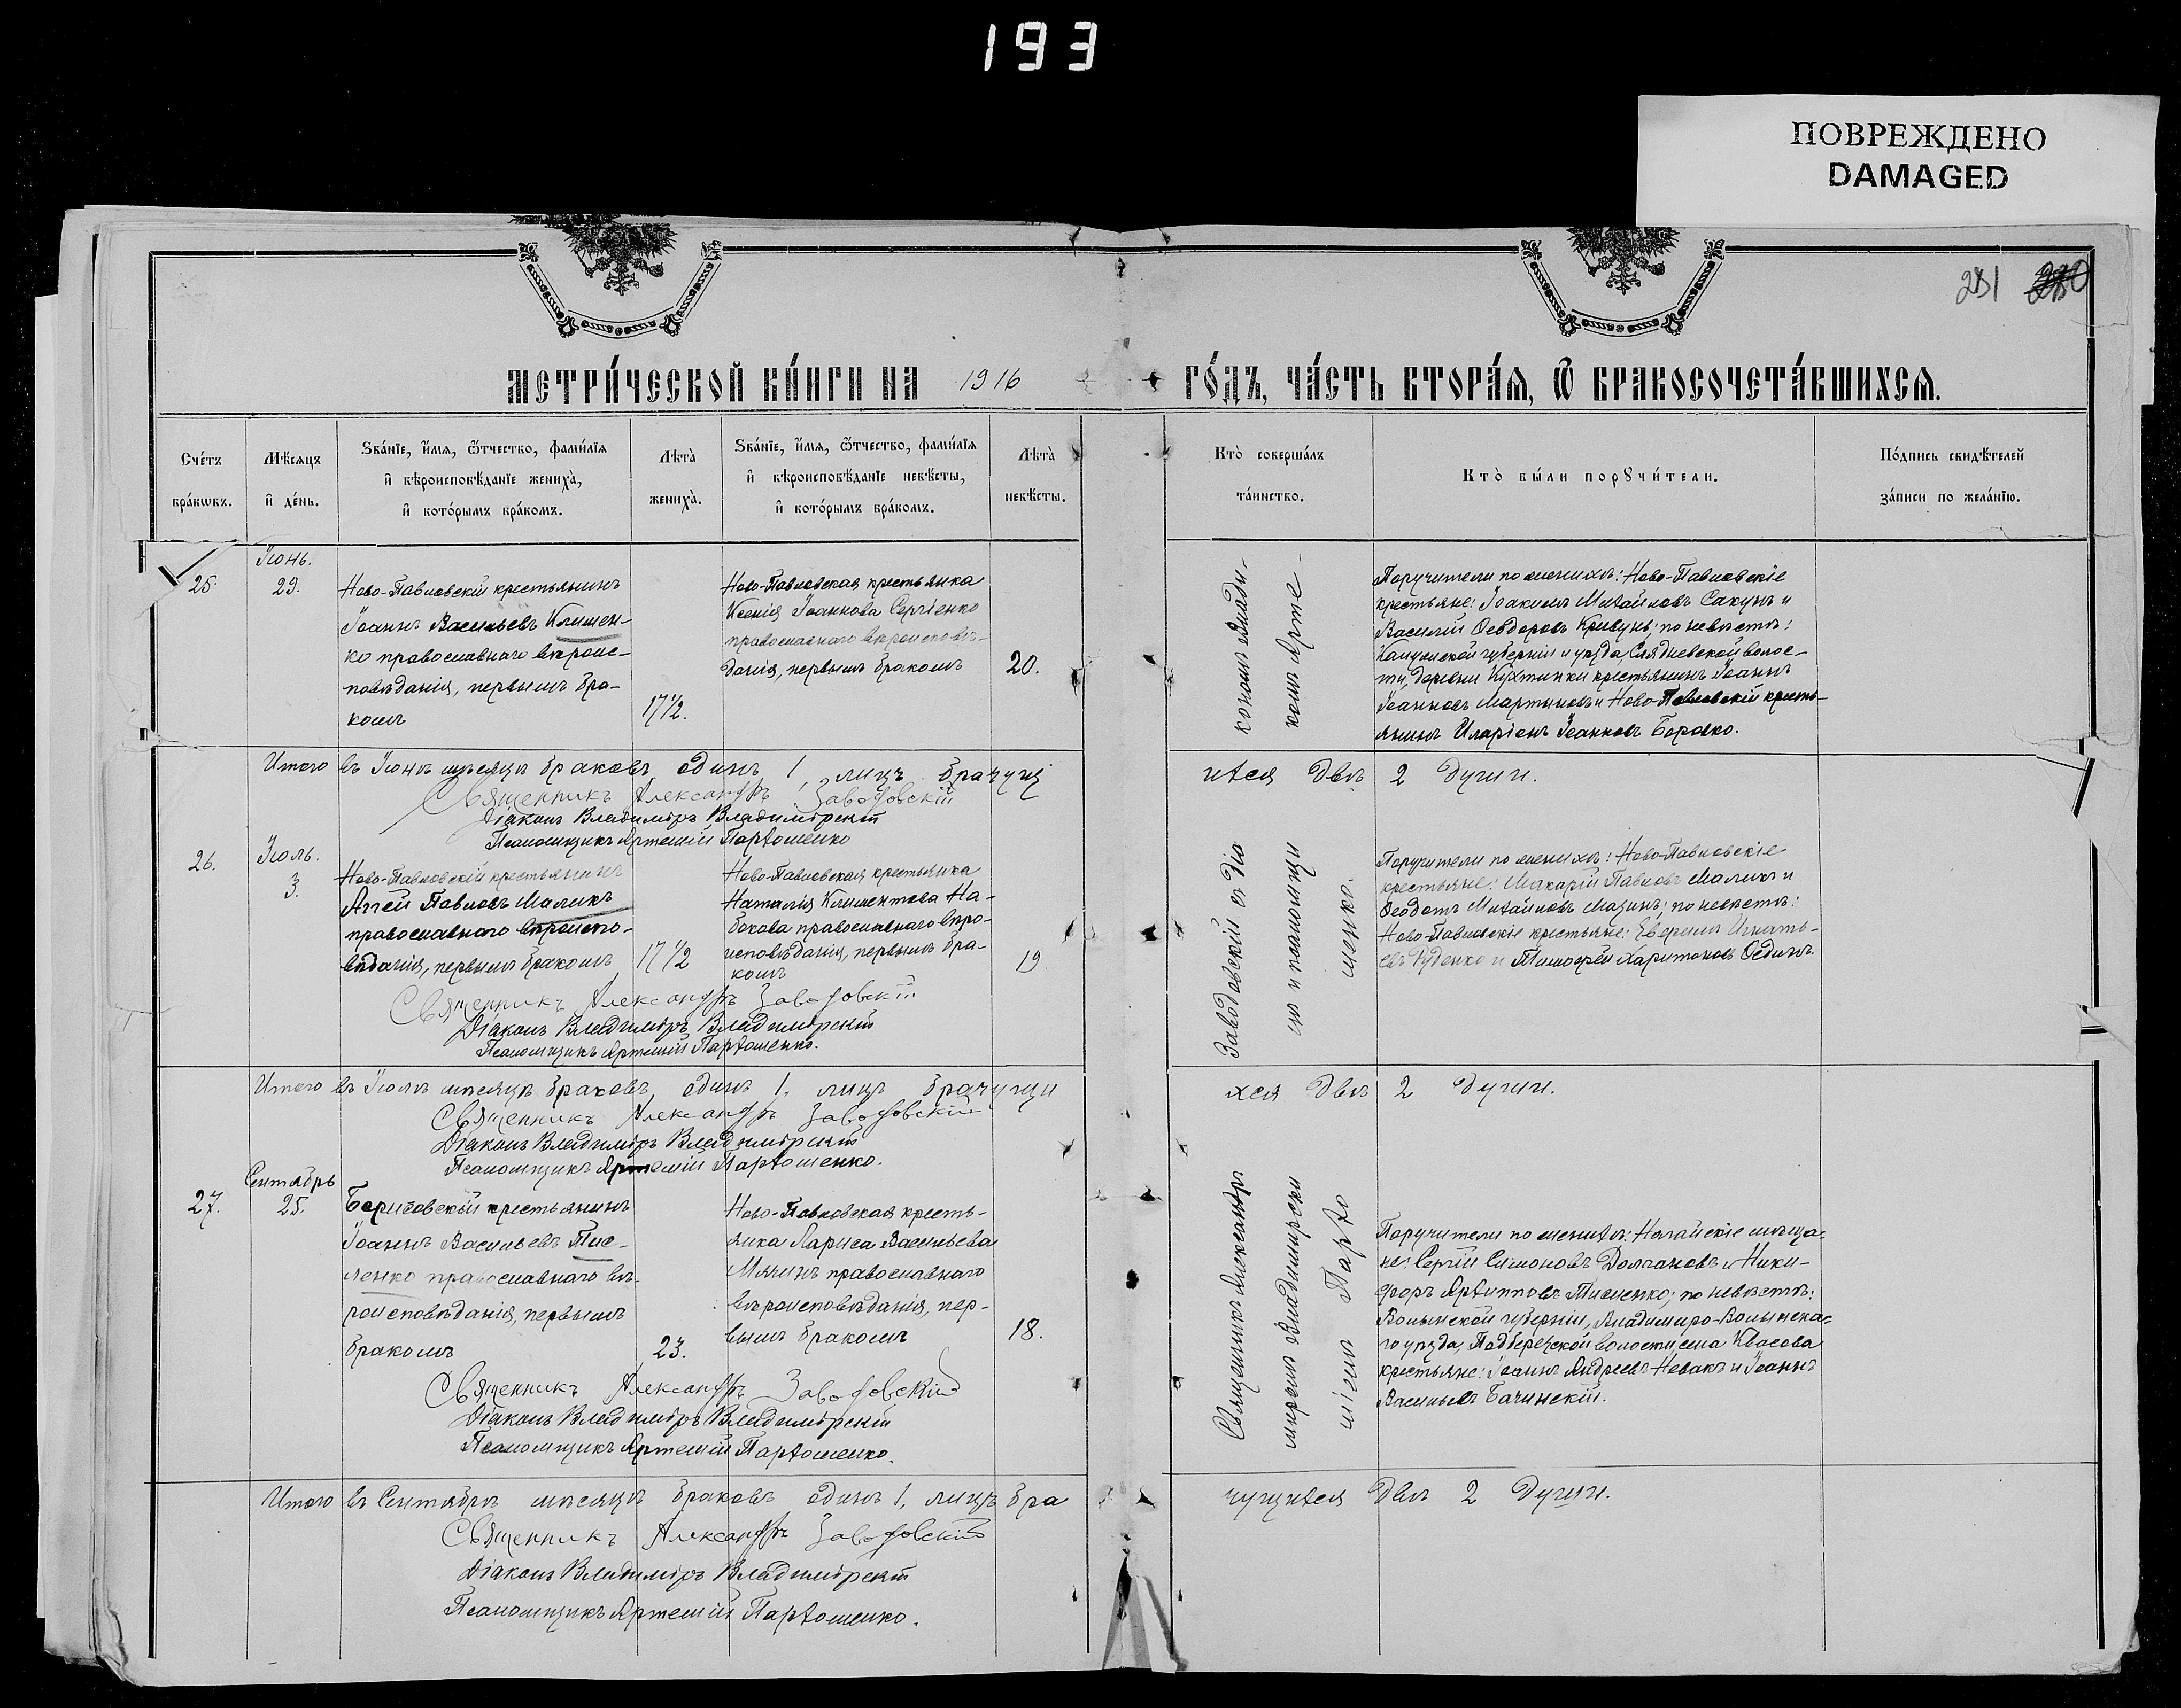 193
ПОВРЕЖДЕНО
DAMAGED
281 280
МЕТРИ́ЧЕСКОЙ КНИ́ГИ НА 1916 ГО́ДЪ, ЧА́СТЬ ВТОРА́Я, Ѿ БРАКОСОЧЕТА́ВШИХСЯ.
Сче́тъ бра́кѡвъ.
Мѣ́сяцъ и҆ де́нь.
Ѕва́нїе, и҆́мя, ѻ҆́тчество, фами́лїя
и҆ вѣроисповѣ́данїе жениха̀,
и҆ кото́рымъ бра́комъ.
Лѣта̀ жениха̀.
Ѕва́нїе, и҆́мя, ѻ҆́тчество, фами́лїя
и҆ вѣроисповѣ́данїе невѣ́сты,
и҆ кото́рымъ бра́комъ.
Лѣта̀ невѣ́сты.
Кто̀ соверша́лъ та́инство.
Кто̀ бы́ли порꙋчи́тели.
По́дпись свидѣ́телей за́писи по жела́нїю.
25.
Іюнь.
29.
Ново-Павловскій крестьянинъ
Іоаннъ Васильевъ Клишен-
ко православнаго вѣроис-
повѣданія, первымъ бра-
комъ
17 1/2.
Ново-Павловская крестьянка
Ксенія Іоаннова Сергіенко
православнаго вѣроисповѣ-
данія, первымъ бракомъ
20.
кономъ Влади-
комъ Арте-
Поручители по женихѣ: Ново-Павловскіе
крестьяне: Іоакимъ Михайловъ Сакунъ и
Василій Ѳеодоровъ Кривунь; по невѣстѣ:
Калужской губерніи и уѣзда, волос-
ти, деревни Кухтинки крестьянинъ Іоаннъ
Іоанновъ Мартыновъ и Ново-Павловскій кресть-
янинъ Иларіонъ Іоанновъ
Итого въ Іюнѣ мѣсяцѣ браковъ одинъ 1, лицъ брачущ
ихся двѣ 2 души.
Священникъ Александръ Заводовскій
Діаконъ Владиміръ Владимірскій
Псаломщикъ Артемій Пархоменко
26.
Іюль.
3.
Ново-Павловскій крестьянинъ
Аггей Павловъ Маликъ
православнаго вѣроиспо-
вѣданія, первымъ бракомъ
17 1/2
Ново-Павловская крестьянка
Наталія Климентова На-
бокова православнаго вѣро-
исповѣданія, первымъ бра-
комъ
19
Заводовскій съ Діа
що и псаломщи
щенко.
Поручители по женихѣ: Ново-Павловскіе
крестьяне: Макарій Павловъ Маликъ и
Ѳеодотъ Михайловъ Мазинъ; по невѣстѣ:
Ново-Павловскіе крестьяне: Евфимъ Игнать-
евъ Руденко и Тимоѳей Харитоновъ
Священникъ Александръ Заводовскій
Діаконъ Владиміръ Владимірскій
Псаломщикъ Артемій Пархоменко.
Итого въ Іюлѣ мѣсяцѣ браковъ одинъ 1, лицъ брачущи
хся двѣ 2 души.
Священникъ Александръ Заводовскій
Діаконъ Владиміръ Владимірскій
Псаломщикъ Артемій Пархоменко.
27.
Сентябрь
25.
Борисовскій крестьянинъ
Іоаннъ Васильевъ Тис-
ленко православнаго вѣ-
роисповѣданія, первымъ
бракомъ
23.
Ново-Павловская кресть-
янка Лариса Васильева
Мячинъ православнаго
вѣроисповѣданія, пер-
вымъ бракомъ
18.
Священникъ Александръ
міромъ Владимирски
міемъ Пархо
Поручители по женихѣ: Ногайскіе мѣща-
не: Сергій Симоновъ Долгановъ и Ники-
форъ Архипповъ Тисленко; по невѣстѣ:
Волынской губерніи, Владимиро-Волынска-
го уѣзда, Подберезской волости, села Квасова
крестьяне: Іоаннъ Андреевъ Новакъ и Іоаннъ
Васильевъ Бачинскій.
Священникъ Александръ Заводовскій
Діаконъ Владиміръ Владимірскій
Псаломщикъ Артемій Пархоменко.
Итого въ Сентябрѣ мѣсяцѣ браковъ одинъ 1, лицъ бра
чущихся двѣ 2 души.
Священникъ Александръ Заводовскій
Діаконъ Владиміръ Владимірскій
Псаломщикъ Артемій Пархоменко.